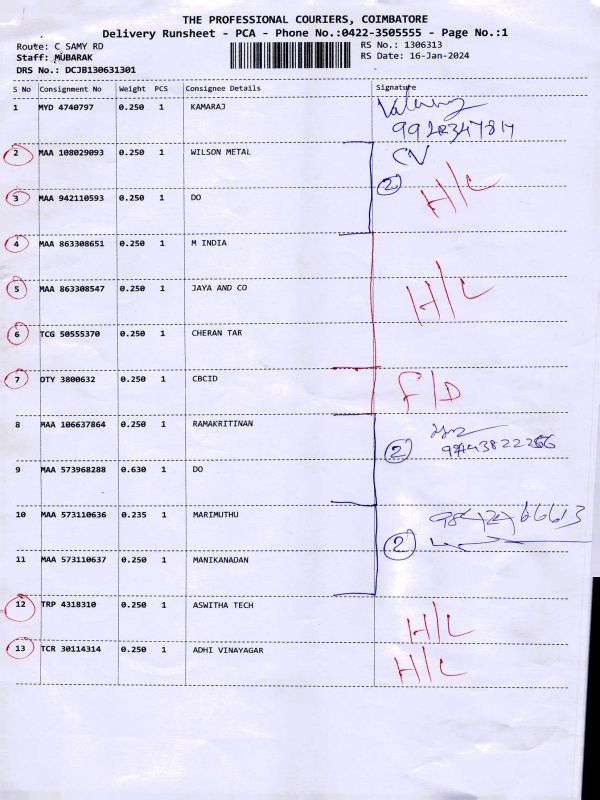 THE PROFESSIONAL COURIERS, COIMBATORE
Delivery Runsheet - PCA - Phone No.:0422-3505555 - Page No.:1
Route: C SAMY RD RS No.: 1306313
Staff: MUBARAK RS Date: 16-Jan-2024
DRS No.: DCJB130631301
S No Consignment No Weight PCS Consignee Details Signature
1 MYD 4740797 0.250 1 KAMARAJ
2 MAA 108029093 0.250 1 WILSON METAL CV
2 H/L
3 MAA 942110593 0.250 1 DO
4 MAA 863308651 0.250 1 M INDIA
5 MAA 863308547 0.250 1 JAYA AND CO H/L
6 TCG 50555370 0.250 1 CHERAN TAR
7 OTY 3800632 0.250 1 CBCID F/D
8 MAA 106637864 0.250 1 RAMAKRITINAN 2
9 MAA 573968288 0.630 1 DO
10 MAA 573110636 0.235 1 MARIMUTHU 2
11 MAA 573110637 0.250 1 MANIKANADAN
12 TRP 4318310 0.250 1 ASWITHA TECH H/L
13 TCR 30114314 0.250 1 ADHI VINAYAGAR H/L